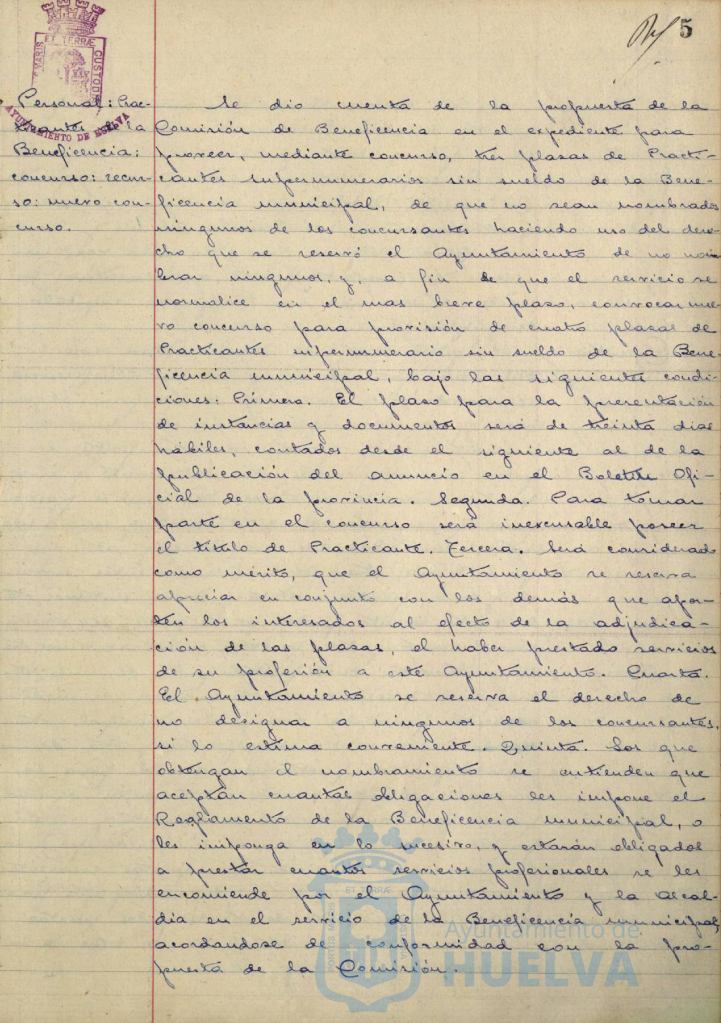 5
PORTUS MARIS ET TERRÆ CUSTODIA
AYUNTAMIENTO DE HUELVA
Personal: Prac-
ticantes de la
Beneficencia:
concurso: recur-
so: nuevo con-
curso.
Se dio cuenta de la propuesta de la
Comisión de Beneficencia en el expediente para
proveer, mediante concurso, tres plazas de Practi-
cantes supernumerarios sin sueldo de la Bene-
ficencia municipal, de que no sean nombrados
ningunos de los concursantes haciendo uso del dere-
cho que se reservó el Ayuntamiento de no nom
brar ningunos, y, a fin de que el servicio se
normalice en el mas breve plazo, convocar nue-
vo concurso para provisión de cuatro plazas de
Practicantes supernumerario sin sueldo de la Bene-
ficencia municipal, bajo las siguientes condi-
ciones: Primera. El plazo para la presentación
de instancias y documentos será de treinta dias
hábiles, contados desde el siguiente al de la
publicación del anuncio en el Boletin Ofi-
cial de la provincia. Segunda. Para tomar
parte en el concurso será inexcusable poseer
el título de Practicante. Tercera. Será considerado
como mérito, que el Ayuntamiento se reserva
apreciar en conjunto con los demás que apor-
ten los interesados al efecto de la adjudica-
ción de las plazas, el haber prestado servicios
de su profesión a este Ayuntamiento. Cuarta.
El Ayuntamiento se reserva el derecho de
no designar a ningunos de los concursantes,
si lo estima conveniente. Quinta. Los que
obtengan el nombramiento se entienden que
aceptan cuantas obligaciones les impone el
Reglamento de la Beneficencia municipal, o
les imponga en lo sucesivo, y estarán obligados
a prestar cuantos servicios profesionales se les
encomiende por el Ayuntamiento y la Alcal-
dia en el servicio de la Beneficencia municipal,
acordandose de conformidad con la pro-
puesta de la Comisión.
Ayuntamiento de
HUELVA